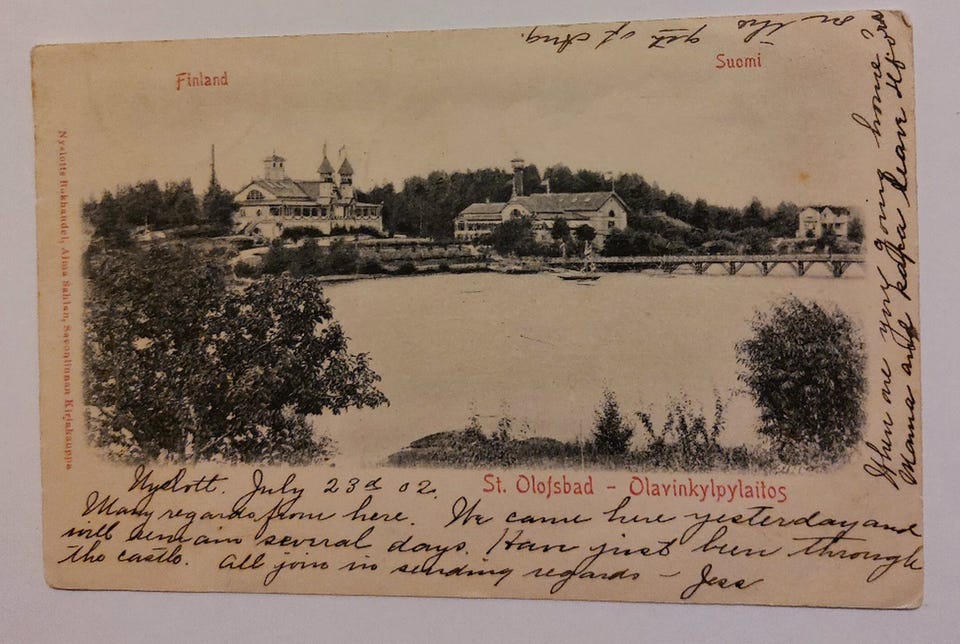 Finland
Suomi
Nyslotts Bokhandel, Alma Sahlan, Savonlinnan Kirjakauppa
St. Olofsbad - Olavinkylpylaitos
Nyslott. July 23d 02.
Many regards from here. We came here yesterday and
will remain several days. Have just been through
the castle. All join in sending regards - Jess
When are you going home?
Mama and papa leave Hfors
on the of Aug.